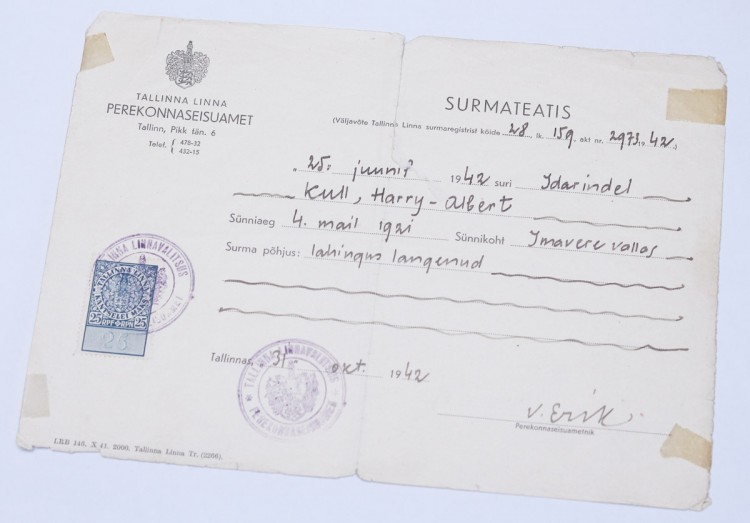 TALLINNA LINNA
PEREKONNASEISUAMET
Tallinn, Pikk tän. 6
Telef. { 478-32
432-15
SURMATEATIS
(Väljavõte Tallinna Linna surmaregistrist köide 28, lk. 159, akt nr. 2973, 1942.)
„25." juunil 1942 suri Idarindel
Kull, Harry-Albert
Sünniaeg 4. mail 1921 Sünnikoht Imavere vallas
Surma põhjus: lahingus langenud
TALLINNA LINNAVALITSUS
TALLINNA LINNA
KANTSELEI MAKS
25 25
Tallinnas, 31 okt. 1942
TALLINNA LINNAVALITSUS
PEREKONNASEISUAMET
V. Erik
Perekonnaseisuametnik
LRB 146. X 41. 2000. Tallinna Linna Tr. (2206).